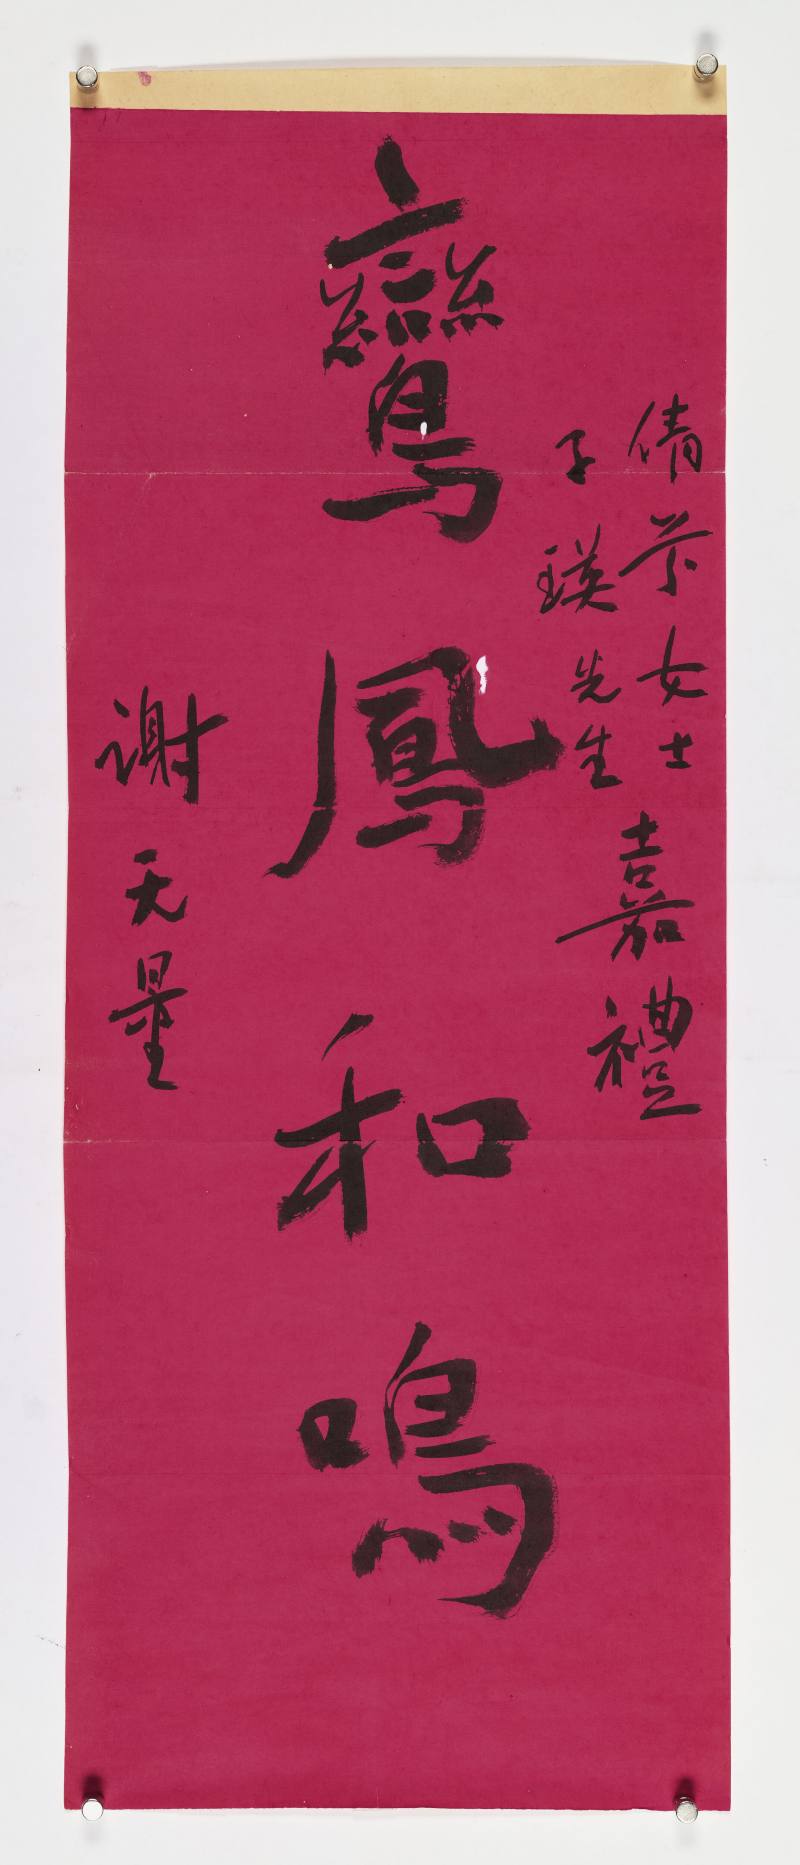 倩女士
子瑛先生
嘉禮
鸞鳳和鳴
謝无量